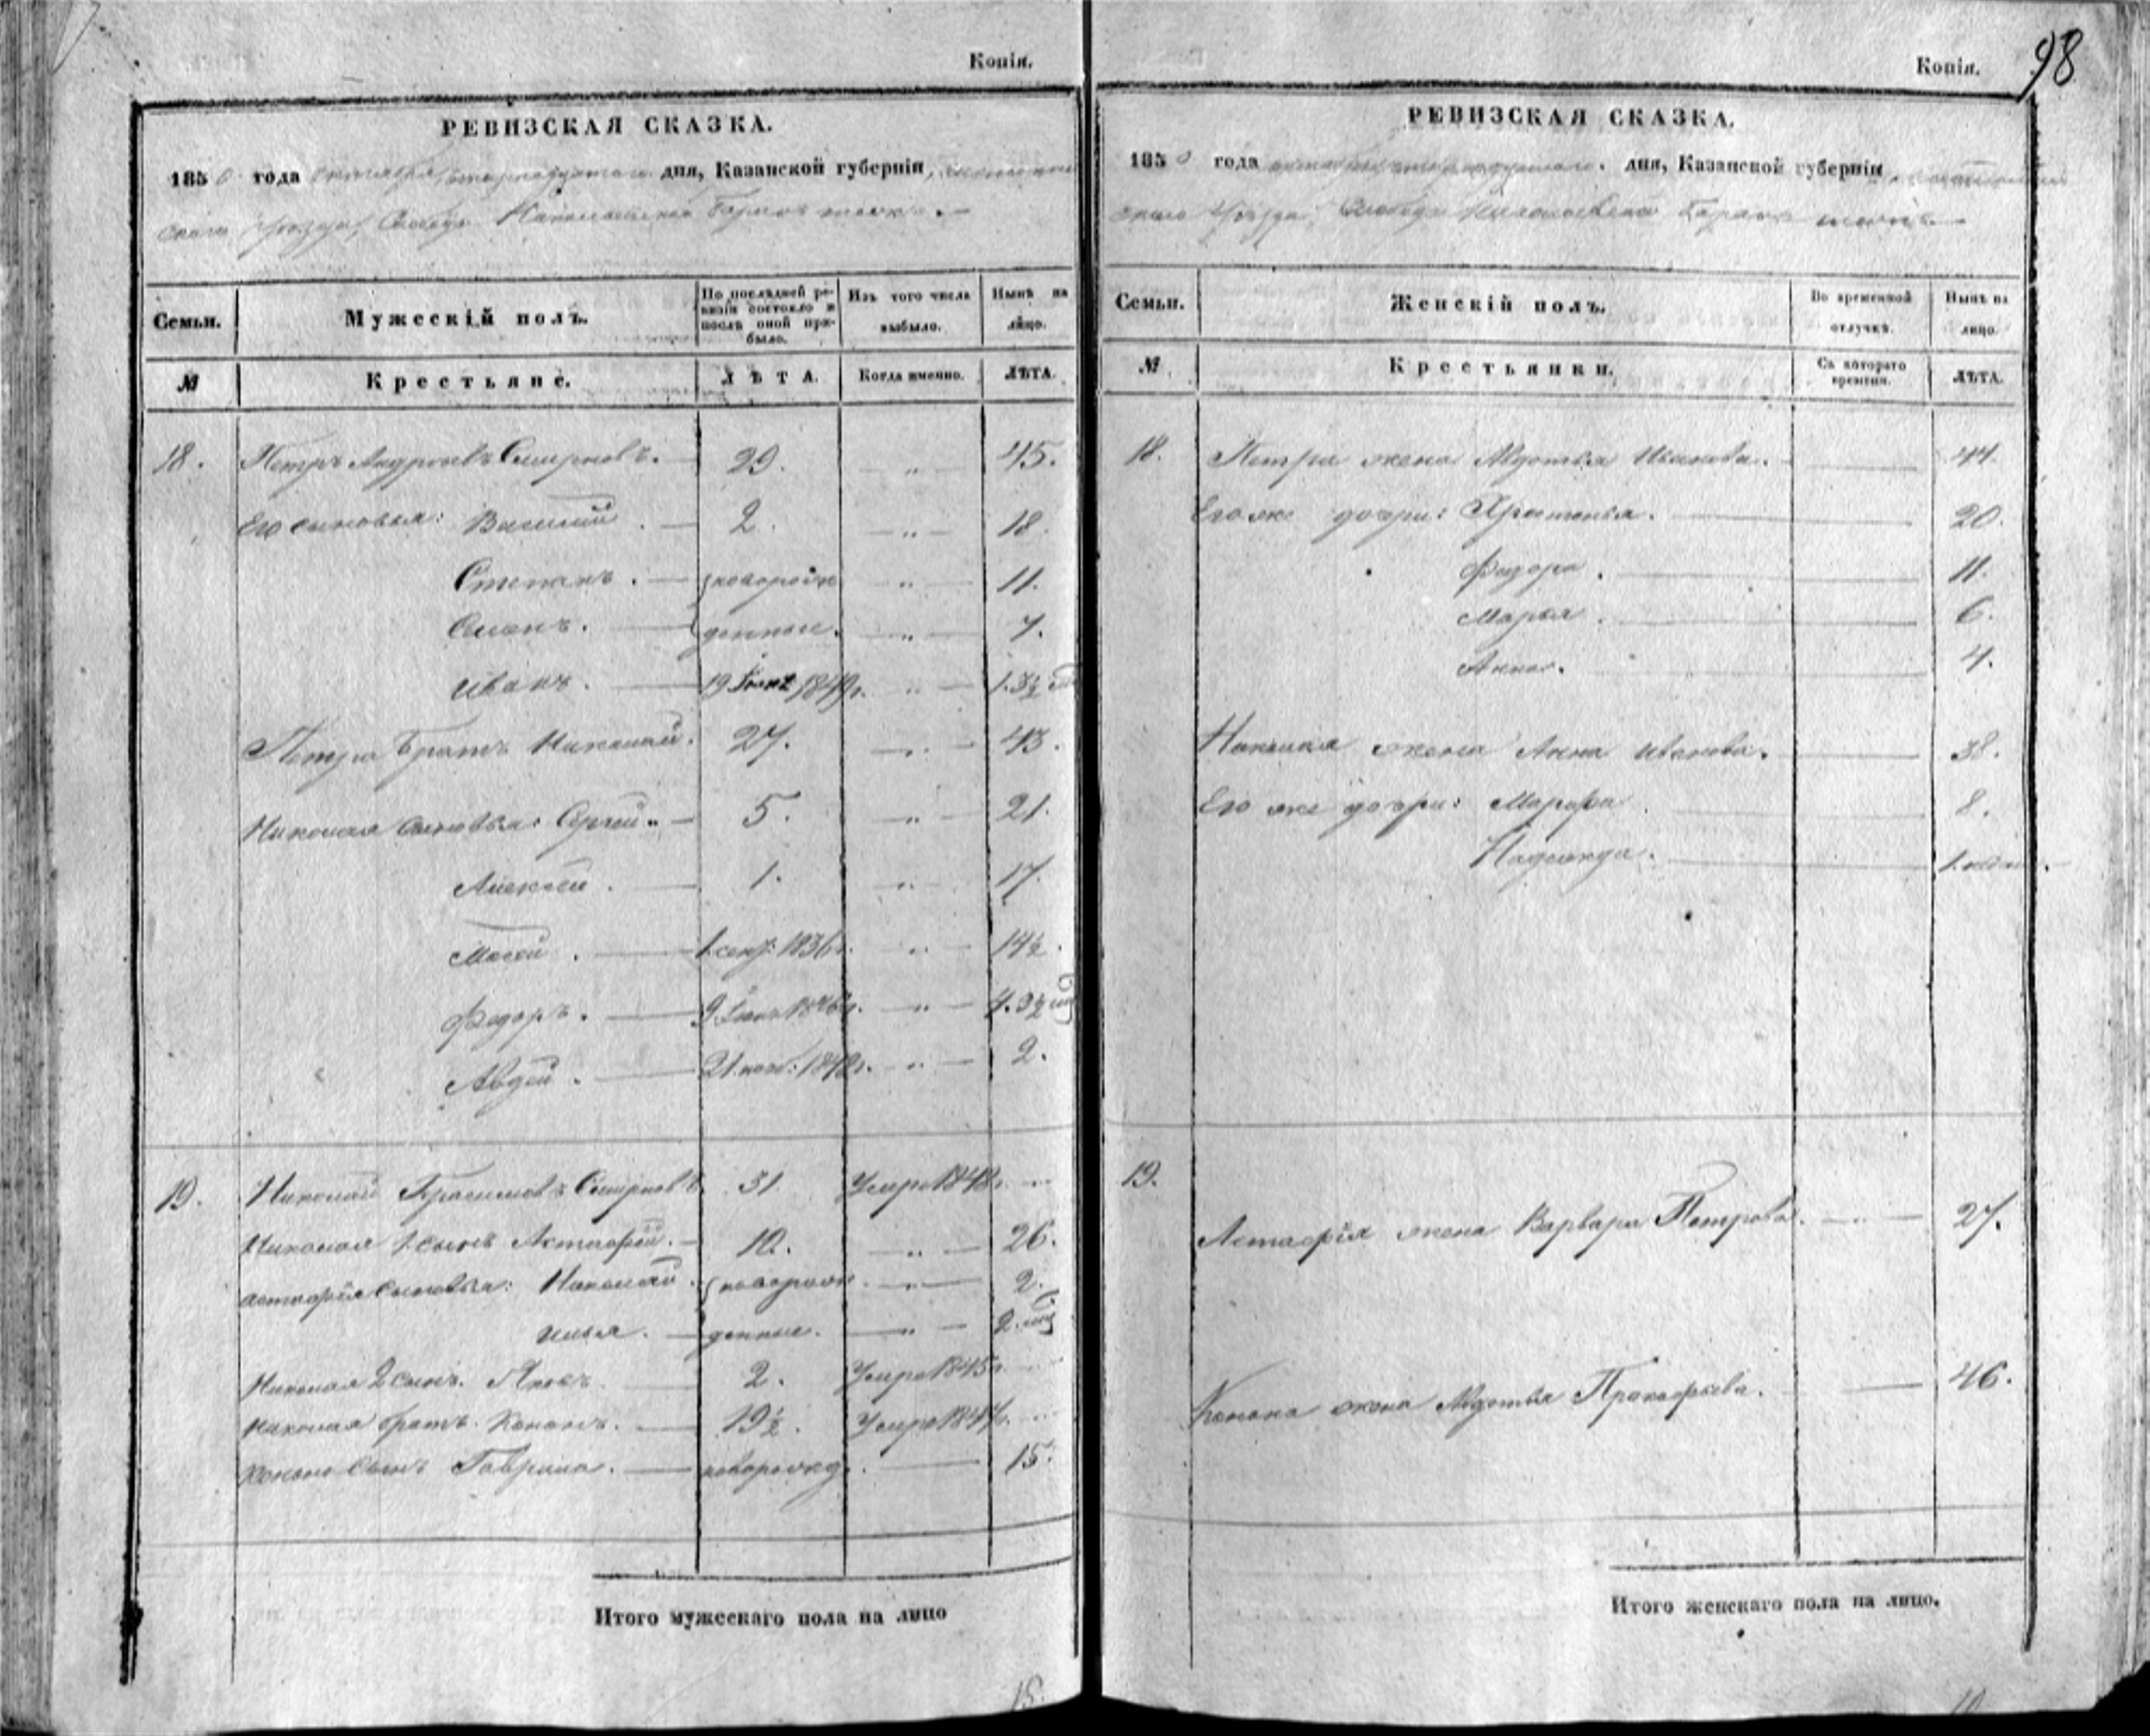 Копія.
РЕВИЗСКАЯ СКАЗКА.
1850 года октября дня, Казанской губерніи,
скаго уѣзда, Слободы
Семьи.
Мужескій полъ.
По послѣдней ревизіи состояло и послѣ оной прибыло.
Изъ того числа выбыло.
Нынѣ на лицо.
№
Крестьяне.
ЛѢТА.
Когда именно.
ЛѢТА.
18. Петръ Андреевъ Смирновъ. — 29. „ 45.
Его сыновья: Василій. — 2. — „ — 18.
Степанъ. — новорож „ — 11.
Семенъ. — денные. — „ — 7.
Иванъ. — 19 Іюня 1849г. „ — 1. 3½ м
Петра братъ Николай. 27. — „ — 43.
Николая сыновья: Сергей. — 5. — „ — 21.
Алексей. — 1. — „ — 17.
Мосей. — 1 сент. 1836г. „ — 14½.
Федоръ. — 9 Іюня 1846г. — „ — 4. 3½ м
Авдей. — 21 нояб: 1848г. — „ — 2.
19. Николай Герасимовъ Смирновъ 31. Умре 1848г. „
Николая 1 сынъ Астафей. — 10. — „ — 26.
Астафія сыновья: Николай. новорож — „ — 2.
Илья. — денные. — „ — 2. мц
Николая 2 сынъ. Яковъ 2. Умре 1845г.
Николая братъ. Кононъ. — 19½. Умре 1847г.
Конона сынъ Гаврила. — новорожд. — 15.
Итого мужескаго пола на лицо
18.
Копія.
98
РЕВИЗСКАЯ СКАЗКА.
1850 года октября дня, Казанской губерніи
скаго уѣзда, Слободы
Семьи.
Женскій полъ.
Во временной отлучкѣ.
Нынѣ на лицо.
№
Крестьянки.
Съ котораго времени.
ЛѢТА.
18. Петра жена Авдотья Иванова. — 44.
Его же дочри: Хрестинья. — 20.
Федора. — 11.
Марья. — 6.
Анна. — 4.
Николая жена Анна Иванова. — 38.
Его же дочри: Марфа 8.
Надежда. — 1.
19.
Астафія жена Варвара Петрова. — „ — 27.
Конона жена Авдотья Прокофьева. — 46.
Итого женскаго пола на лицо.
10